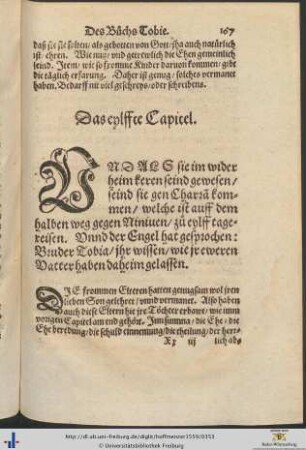 Des Bůchs Tobie. 167
daß sie sie sollen/ als gebotten von Gott/ ja auch natürlich
ist/ ehren. Wie nutz/ vnd getrewlich die Ehen gemeinlich
seind. Item/ wie so fromme Kinder daruon kommen/ gibt
die täglich erfarung. Daher ist genug/ solches vermanet
haben. Bedarff nit viel geschreys/ oder schreibens.
Das eylffte Capitel.
VND ALS sie im wider
heim keren seind gewesen/
seind sie gen Charrã kom-
men/ welche ist auff dem
halben weg gegen Niniuen/ zů eylff tage-
reisen. Vnnd der Engel hat gesprochen:
Brůder Tobia/ jhr wissen/ wie jr eweren
Vatter haben daheim gelassen.
DIE frommen Elteren hatten genugsam wol jren
lieben Son gelehret/ vnnd vermanet. Also haben
auch diese Eltern hie jre Tochter
vorigen Capitel am end gehört. Inn summa/ die Ehe/ die
Ehe beredung/ die schuld einnemung/ die theilung/ der herr-
Xx iij lich ab-
http://dl.ub.uni-freiburg.de/diglit/hoffmeister1559/0353
© Universitätsbibliothek Freiburg
Baden-Württemberg